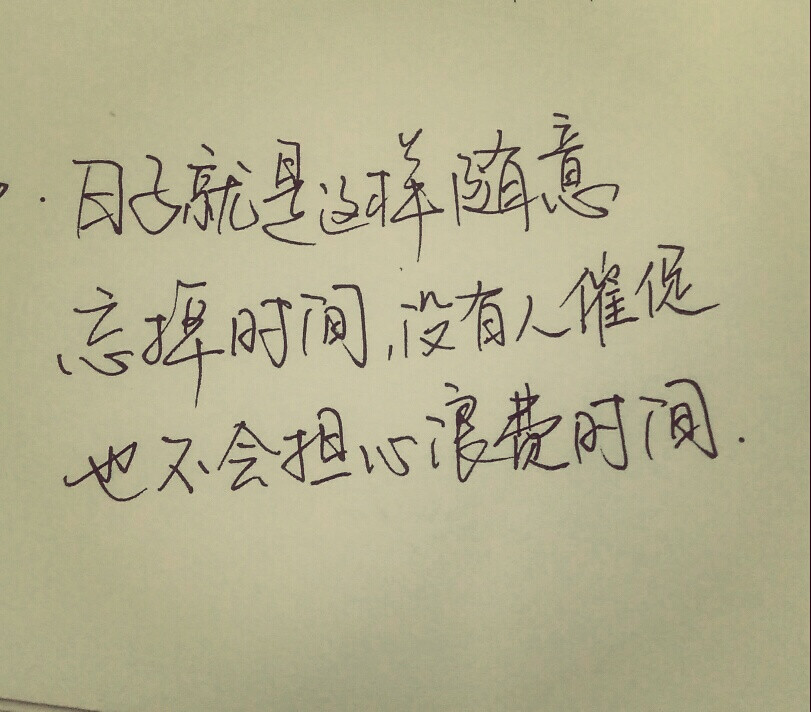 日子就是这样随意
忘掉时间,没有人催促
也不会担心浪费时间.